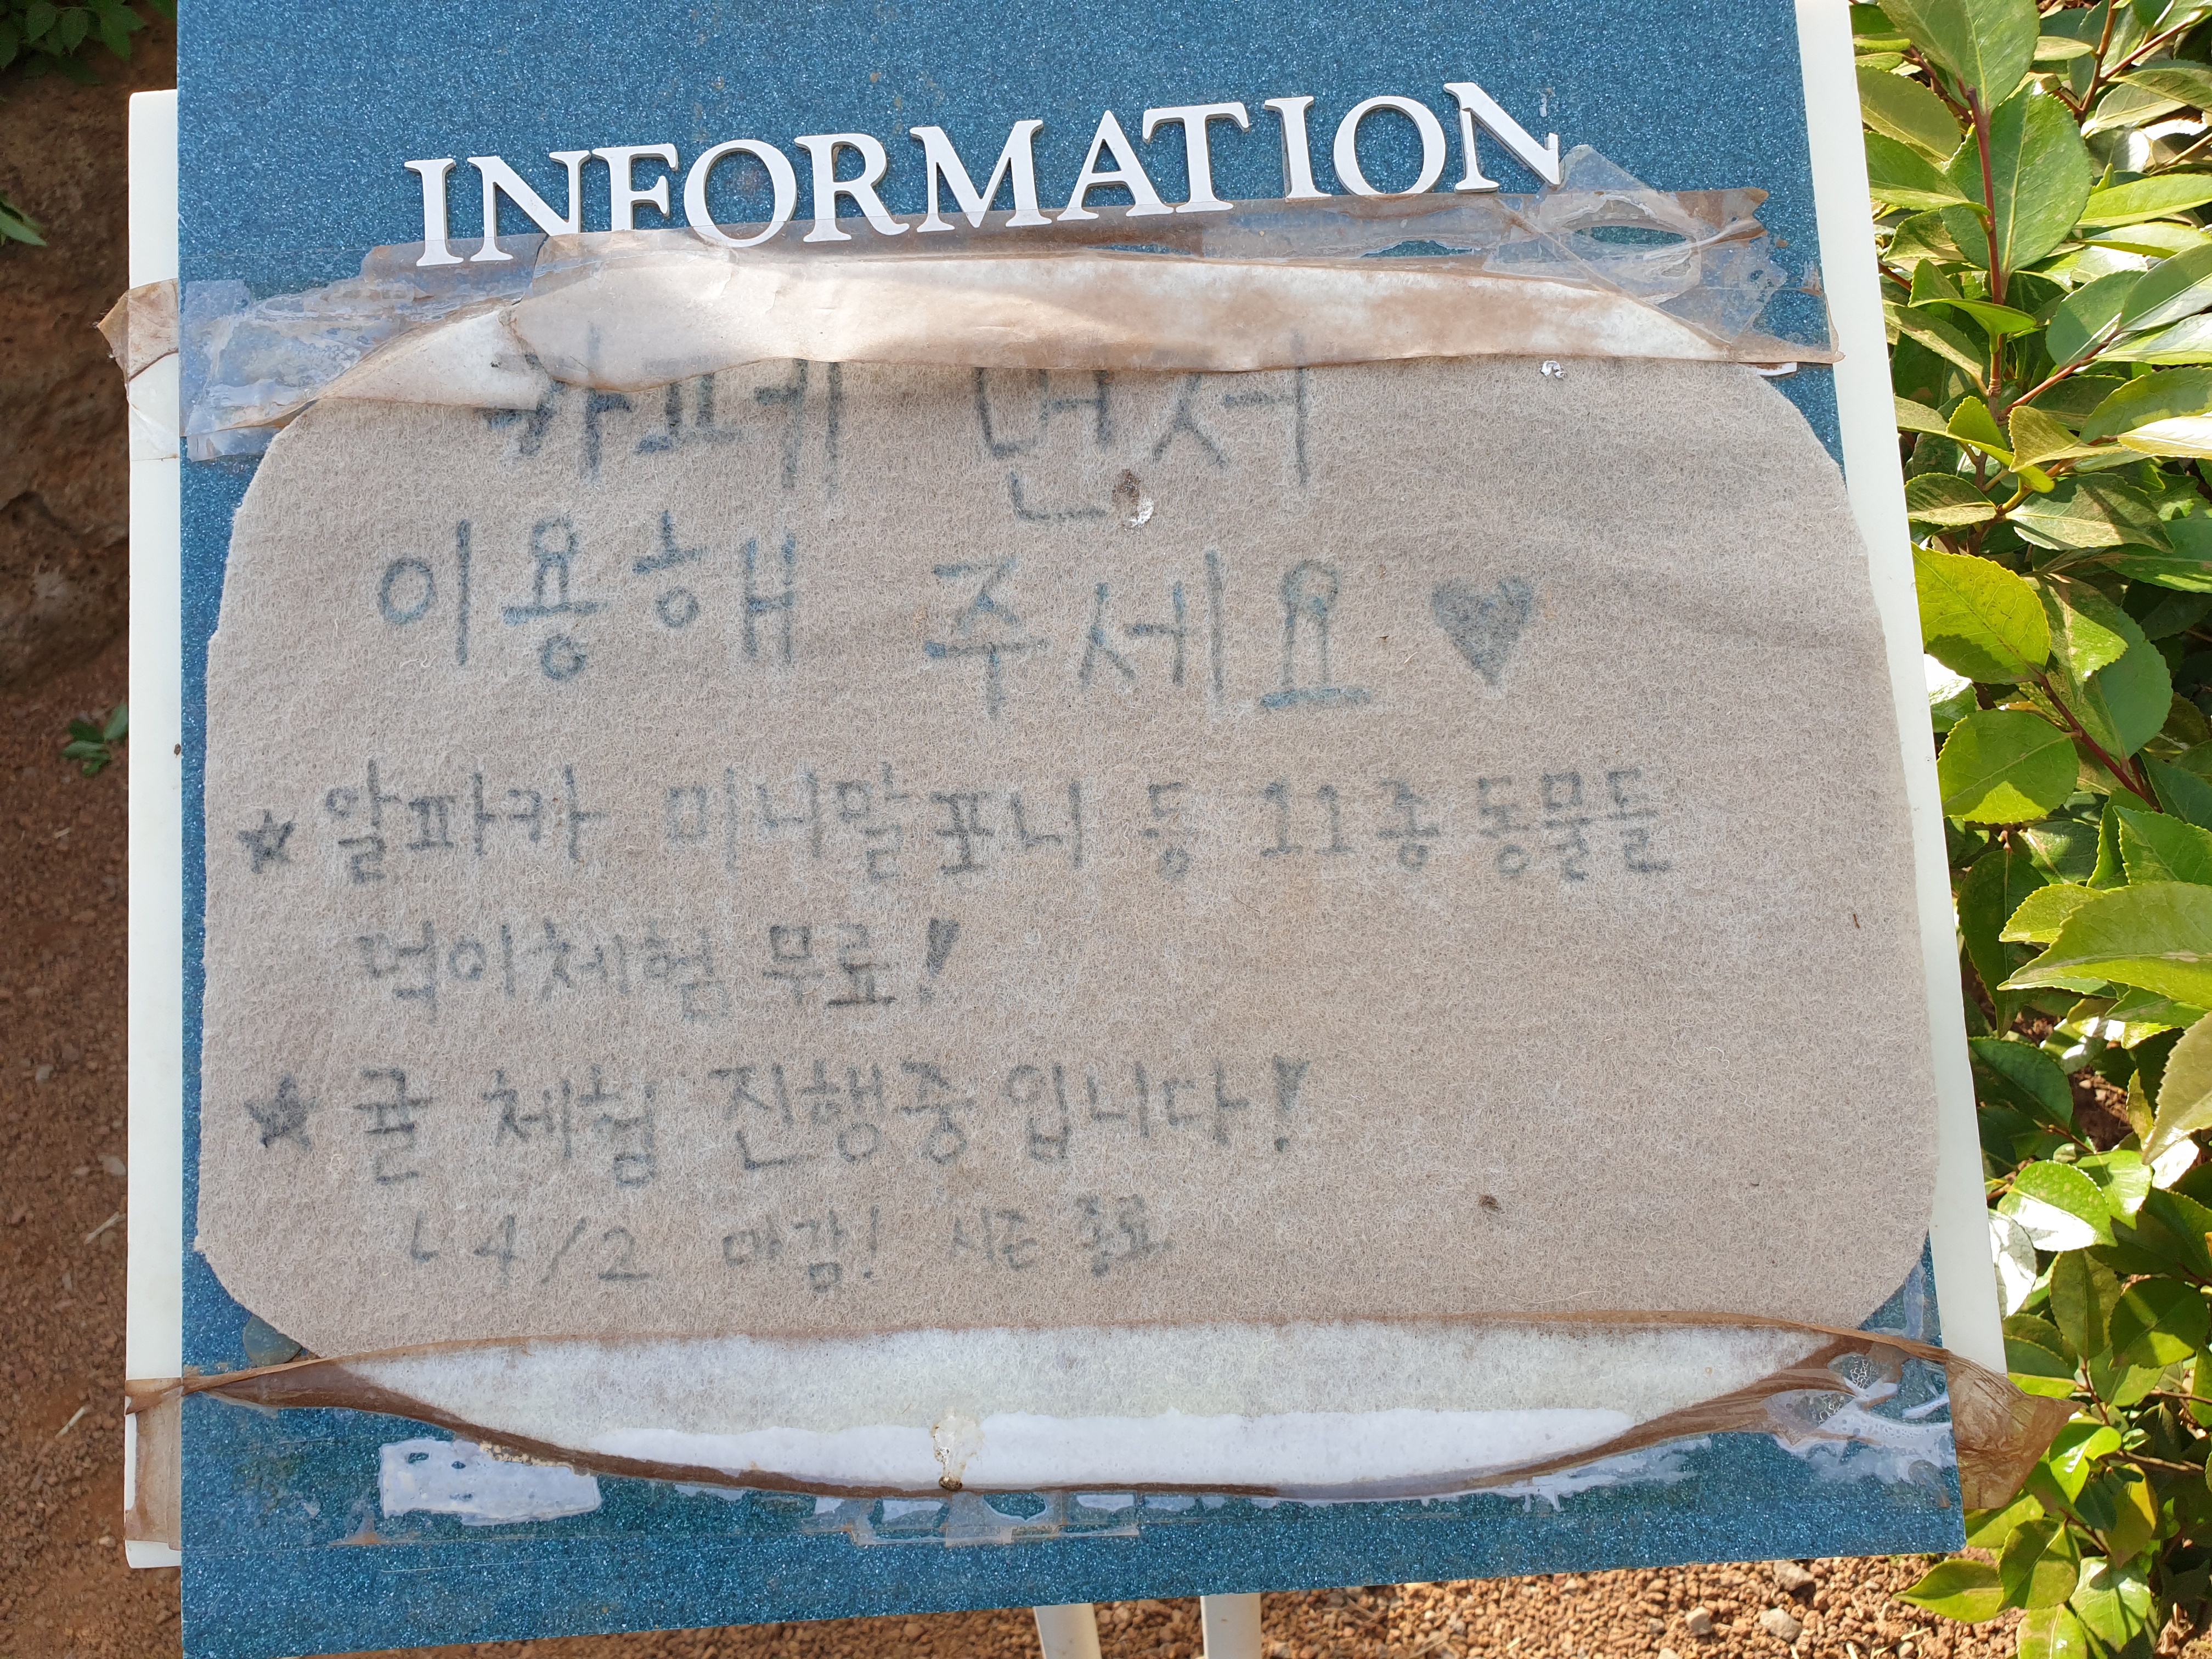 INFORMATION
카페 먼저
이용해 주세요♥
★ 알파카 미니말포니 등 11종 동물들
먹이체험 무료!
★ 귤 체험 진행중입니다!
ㄴ4/2 마감! 시즌 종료